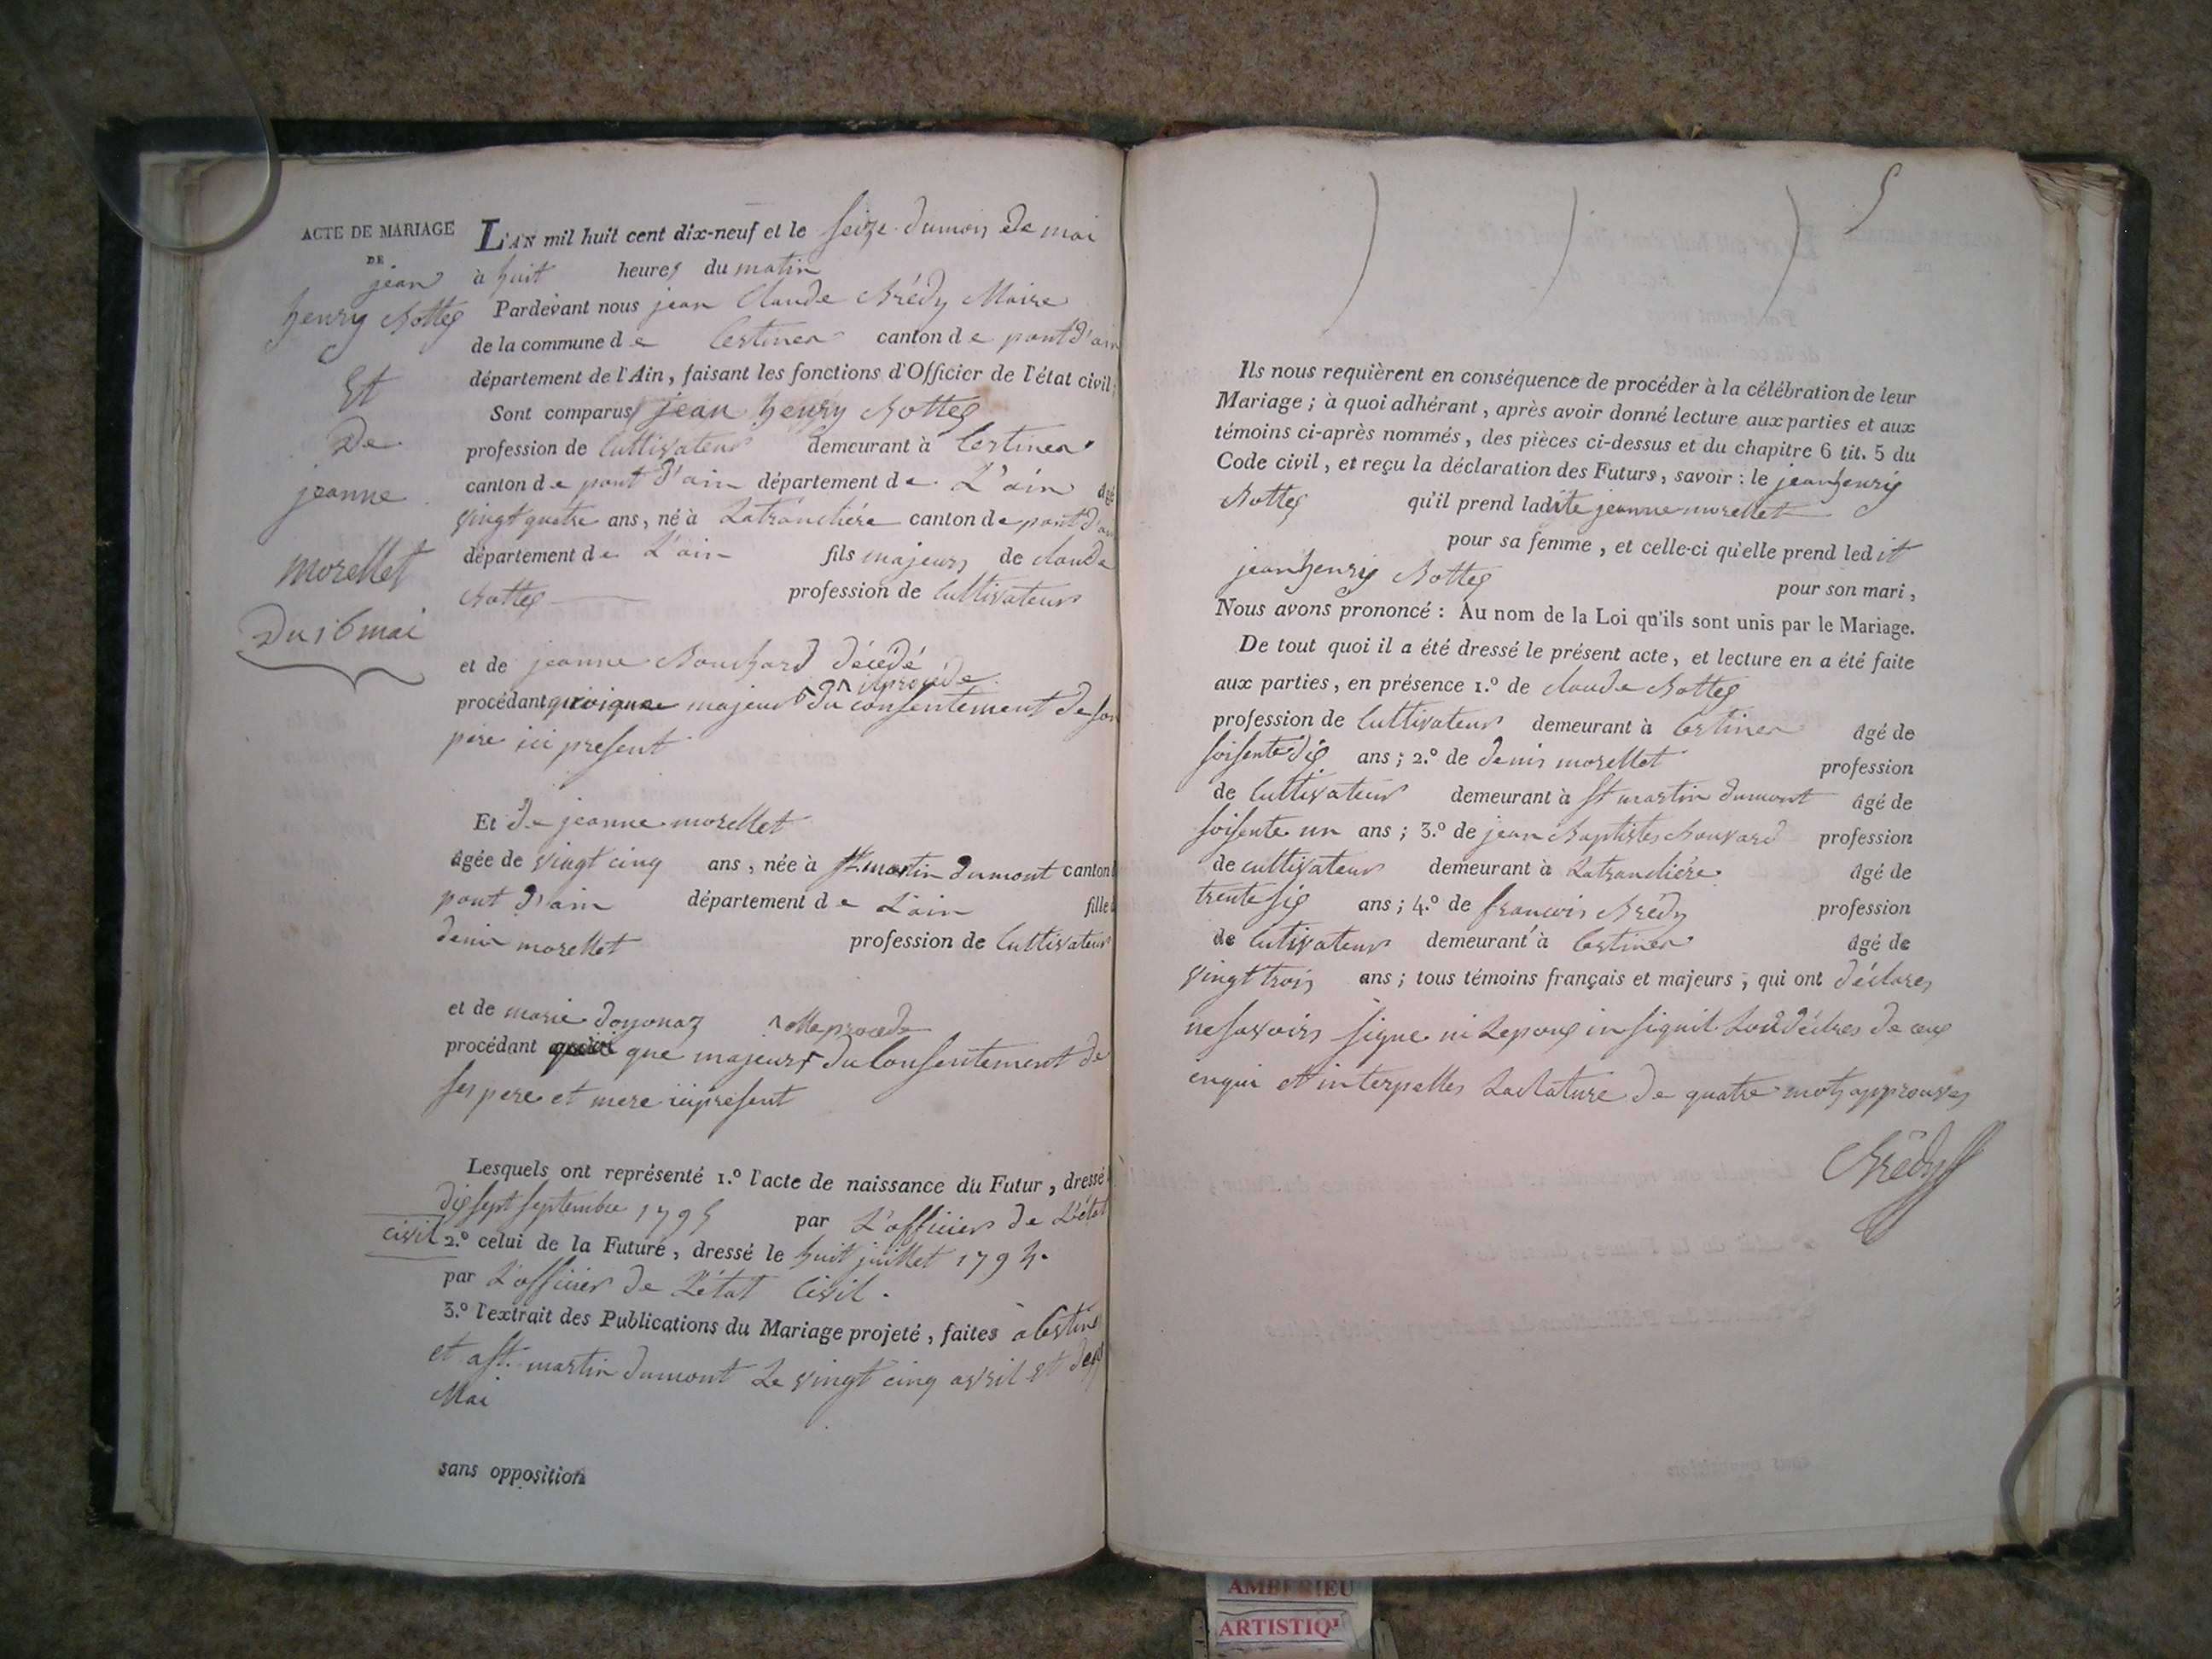 ACTE DE MARIAGE
DE
jean
henry Bottex
Et
De
jeanne
morellet
Du 16 mai
L'AN mil huit cent dix-neuf et le seize du mois de mai
à huit heures du matin
Pardevant nous jean Claude Brédy Maire
de la commune de Certines canton de pont d'ain
département de l'Ain, faisant les fonctions d'Officier de l'état civil;
Sont comparus jean henry Bottex
profession de Cultivateur demeurant à Certines
canton de pont d'ain département de L'ain agé
vingt quatre ans, né à Latranclière canton de pont d'ain
département de L'ain fils majeurs de claude
Bottex profession de Cultivateur
et de jeanne Bouchard décédé
il procéde
procédant quoique majeur du consentement de son
père ici present
Et de jeanne morellet
âgée de vingt cinq ans, née à St. martin dumont canton
pont d'ain département de L'ain fille
denis morellet profession de Cultivateur
et de marie doyonaz
elle procede
procédant que majeurs du Consentement de
ses pere et mere ici present
Lesquels ont représenté 1.º l'acte de naissance du Futur, dressé
dix sept septembre 1795 par L'officier de L'état
civil 2.º celui de la Future, dressé le huit juillet 1794.
par L'officier de L'état Civil.
3.º l'extrait des Publications du Mariage projeté, faites a Certines
et a St. martin dumont Le vingt cinq avril et deux
Mai
sans opposition
5
Ils nous requièrent en conséquence de procéder à la célébration de leur
Mariage; à quoi adhérant, après avoir donné lecture aux parties et aux
témoins ci-après nommés, des pièces ci-dessus et du chapitre 6 tit. 5 du
Code civil, et reçu la déclaration des Futurs, savoir: le jean henry
Bottex qu'il prend ladite jeanne morellet
pour sa femme, et celle-ci qu'elle prend ledit
jean henry Bottex pour son mari,
Nous avons prononcé: Au nom de la Loi qu'ils sont unis par le Mariage.
De tout quoi il a été dressé le présent acte, et lecture en a été faite
aux parties, en présence 1.º de claude Bottex
profession de Cultivateur demeurant à Certines âgé de
soisente dix ans; 2.º de denis morellet profession
de Cultivateur demeurant à St martin dumont âgé de
soisente un ans; 3.º de jean Baptiste Bouvard profession
de cultivateur demeurant à Latranclière âgé de
trente six ans; 4.º de francois Brédy profession
de Cutivateur demeurant à Certines âgé de
vingt trois ans; tous témoins français et majeurs, qui ont déclares
ne savoirs signe ni Lepoux de ceux
enquis et interpelles La Rature de quatre mots approuves
Brédy
AMBERIEU
ARTISTIQ